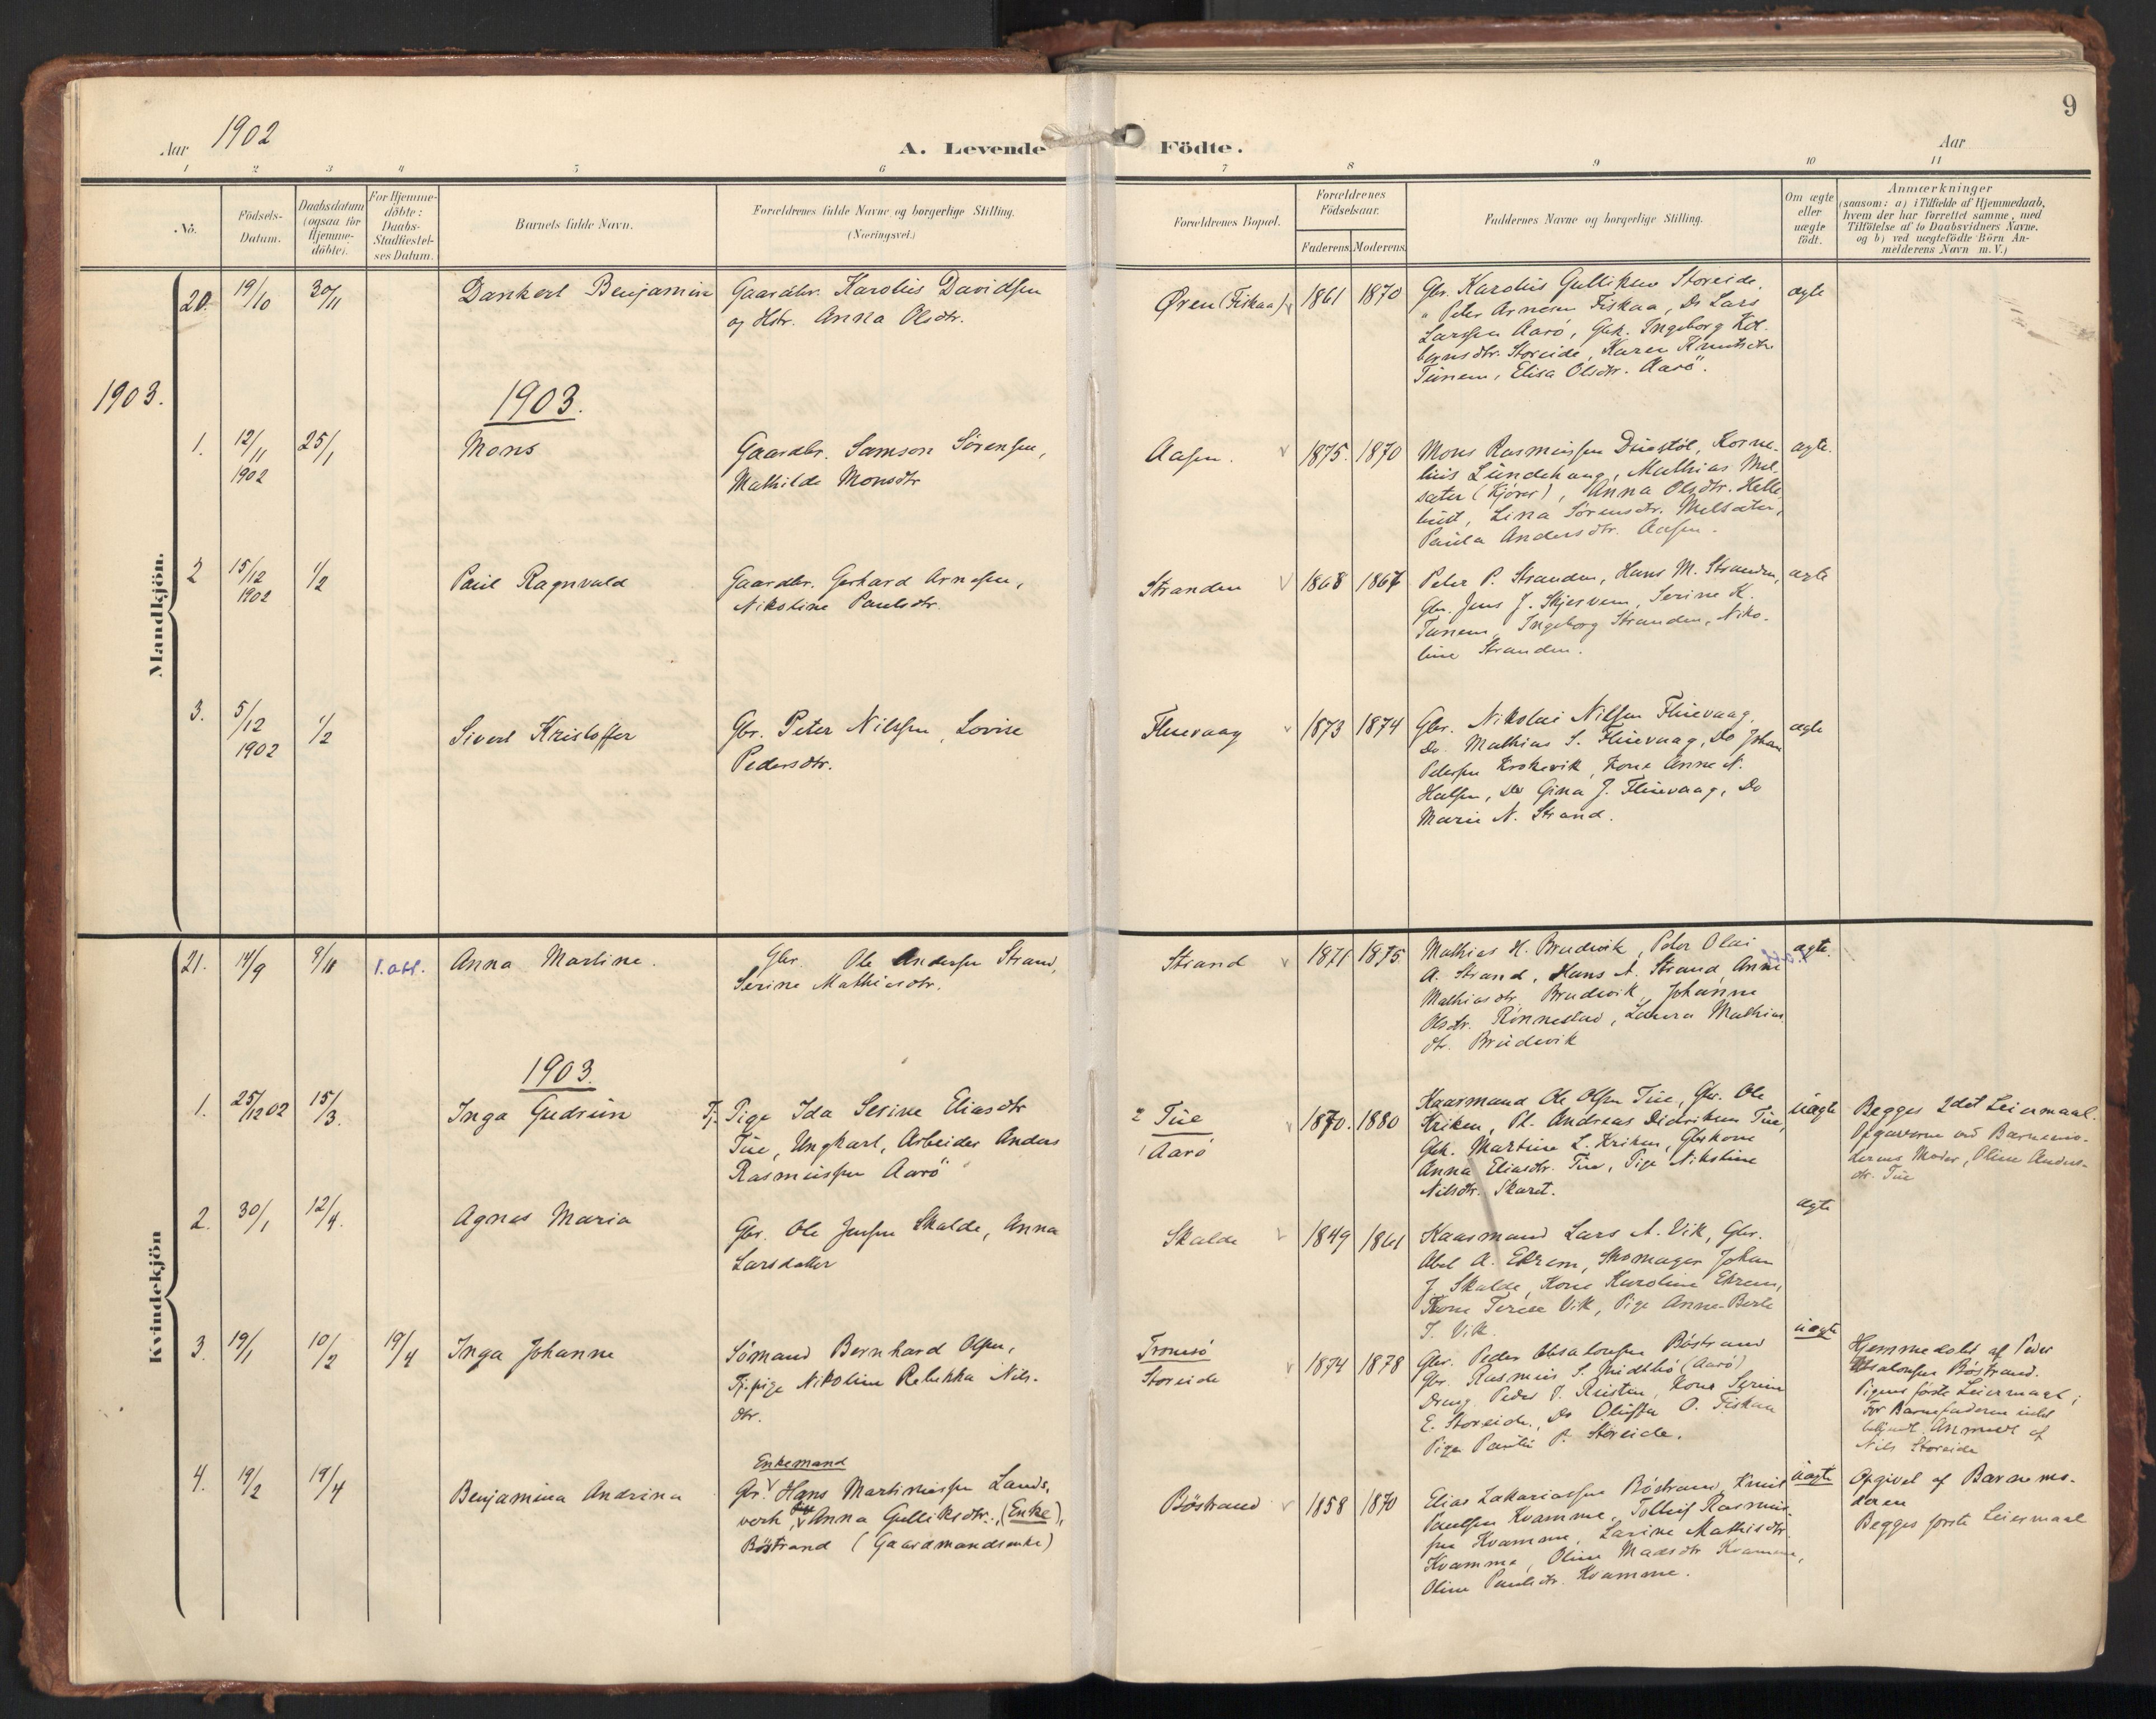 Aar 1902
A. Levende Födte.
Aar
9
1 2 3 4 5 6 7 8 9 10 11
No.
Födsels-
Datum.
Daabsdatum
(ogsaa for
Hjemme-
döbte).
For Hjemme-
döbte:
Daabs-
Stadfæstel-
ses Datum.
Barnets fulde Navn.
Forældrenes fulde Navne og borgerlige Stilling.
(Næringsvei.)
Forældrenes Bopæl.
Forældrenes
Födselsaar.
Faderens. Moderens.
Faddernes Navne og borgerlige Stilling.
Om ægte
eller
uægte
födt.
Anmærkninger
(saasom: a) i Tilfælde af Hjemmedaab,
hvem der har forrettet samme, med
Tilföielse af to Daabsvidners Navne.
og b) ved uægtefödte Börn An-
melderens Navn m. V.)
Mandkjön.
20. 19/10 30/11
Dankert Benjamin
Gaardbr. Karolius Davidsen
og Hstr. Anna Olsdtr.
Øren (Fiskaa)
1861 1870
Gbr. Karolus Gulliksen Storeide,
" Peter Arnesen Fiskaa, Do Lars
Larssen Aarö, Gbk. Ingeborg Kol-
bernsdtr. Storeide, Karen Knutsdtr.
Tunem, Elisa Olsdtr. Aarö.
ægte
1903.
1903.
1. 12/11 1902 25/1
Mons
Gaardbr. Samson Sörensen,
Mathilde Monsdtr
Aasen.
1875. 1870
Mons Rasmussen Duestöl, Korne-
lius Lundehaug, Mathias Mel-
sæter (Kjörer), Anna Olsdtr. Helle-
hust, Lina Sörensdtr. Melsæter,
Paula Andersdtr. Aasen.
ægte.
2 15/12 1902 1/2
Paul Ragnvald
Gaardbr. Gerhard Arnesen,
Nikoline Paulsdtr.
Stranden
1868 1867
Peter P. Stranden, Hans M. Stranden,
Gbr. Jens J. Skjesvem, Serine K.
Tunem, Ingeborg Stranden, Niko-
line Stranden.
ægte
3. 5/12 1902 1/2
Sivert Kristoffer
Gbr. Peter Nilssen, Lovise
Pedersdtr.
Fluevaag
1873 1874
Gbr. Nikolai Nilsen Fluevaag,
Do. Mathias S. Fluevaag, Do Johan
Petersen Krokevik, Kone Anne N.
Halsen, Do Gina J. Fluevaag, Do
Marie N. Strand.
ægte
Kvindekjön
21. 14/9 9/11 1. att.
Anna Martine.
Gbr. Ole Andersen Strand,
Serine Mathiasdtr.
Strand
1871 1875
Mathias H. Brudevik, Peter Olai
A. Strand, Hans A. Strand Anne
Mathiasdtr. Brudevik, Johanne
Olsdtr. Rönnestad, Laura Mathias-
dtr. Brudevik
ægte.
1903.
1. 25/12 02 15/3.
Inga Gudrun
Tj. Pige Ida Serine Eliasdtr
Tue, Ungkarl, Arbeider Anders
Rasmussen Aarö
2 Tue
1 Aarö
1870. 1880
Kaarmand Ole Olsen Tue, Gbr. Ole
Kriken, Pl. Andreas Didriksen Tue,
Gbk. Martine L. Kriken, Gbrkone
Anna Eliasdtr. Tue, Pige Nikoline
Nilsdtr. Skaret.
uægte
Begges 2det Leiermaal.
Opgaverne ved Barnemo-
derens Moder, Oline Anders-
dtr. Tue
2. 30/1 12/4.
Agnes Maria
Gbr. Ole Jensen Skalde, Anna
Larsdatter
Skalde
1849 1861
Kaarmand Lars A. Vik, Gbr.
Abel A. Ekrem, Skomager Johan
J. Skalde, Kone Karoline Ekrem,
Kone Terese Vik, Pige Anne-Berte
J. Vik.
ægte
3. 19/1 10/2 19/4
Inga Johanne
Sömand Bernhard Olsen,
Tj. pige Nikoline Rebekka Nils-
dtr.
Tromsö
Storeide
1874 1878
Gbr. Peder Absalonsen Böstrand
Gbr. Rasmus S. Midtbö (Aarö)
Dreng Peder J. Reisten, Kone Serine
E. Storeide, Do Oluffa O. Fiskaa
Pige Paula P. Storeide.
uægte
Hjemmedöbt af Peder
Absalonsen Böstrand.
Pigens förste Leiermaal;
For Barnefaderen intet
bekjendt. Anmeldt af
Nils Storeide
4. 19/2 19/4
Benjamina Andrina
Enkemand
Gbr. Hans Martinussen Lands-
verk, Anna Gulliksdtr., (Enke),
Böstrand (Gaardmandsenke)
Böstrand
1858 1870
Elias Zakariassen Böstrand, Knut
Paulsen Kvamme, Tolleif Rasmus-
sen Kvamme, Larine Mathisdtr.
Kvamme, Oline Madsdtr Kvamme,
Oline Paulsdtr. Kvamme.
uægte
Opgivet af Barnemo-
deren
Begges förste Leiermaal